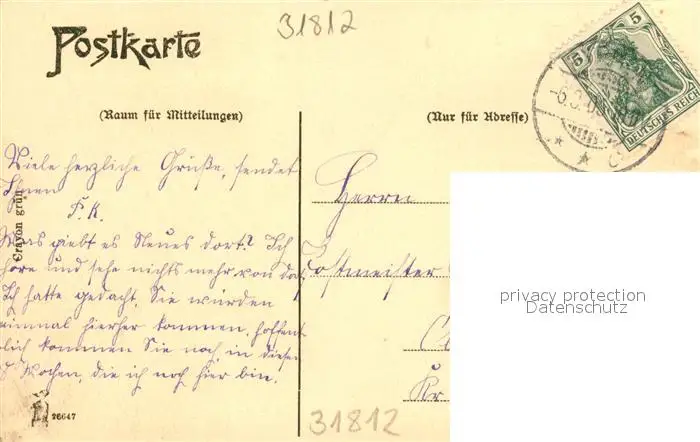 31812
Postkarte
5
5
DEUTSCHES REICH
(Raum für Mitteilungen)
(Nur für Adresse)
Viele herzliche Grüße, sendet
Ihnen
F. K.
Was giebt es Neues dort? Ich
höre und sehe nichts mehr von da.
Ich hatte gedacht, Sie würden
einmal hierher kommen, hoffent
lich kommen Sie noch in diesen
Wochen, die ich noch hier bin.
Crayon grün
26647
Herrn
Postmeister
Kr
31812
privacy protection
Datenschutz